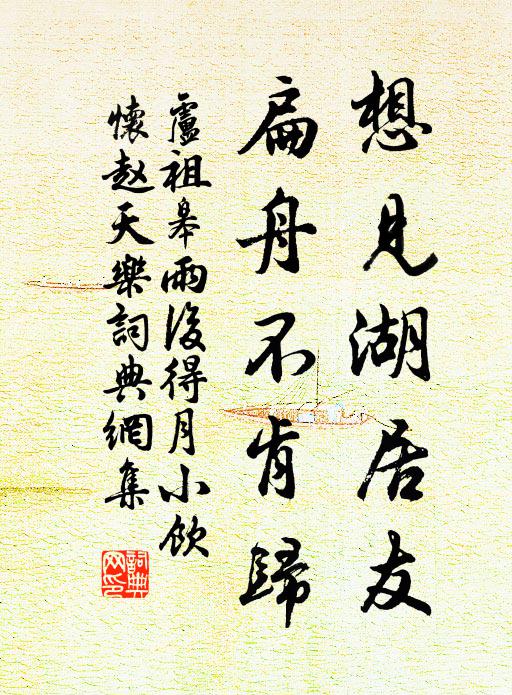 想見湖居友
扁舟不肯歸
盧祖皋雨後得月小飲
懷赵天樂詞典網集
詞典
网印